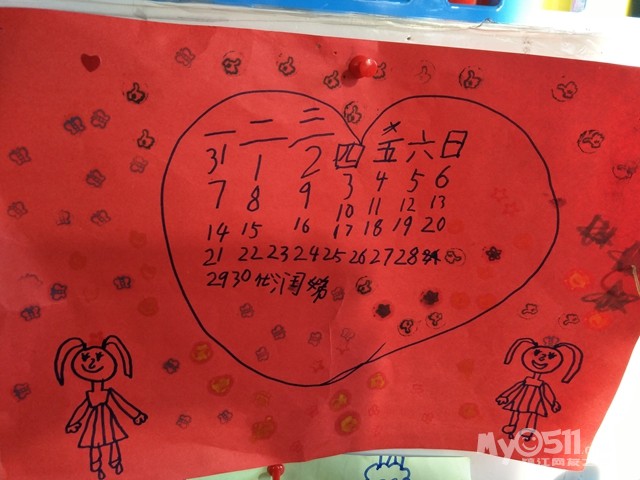 一 二 三 四 五 六 日
31 1 2 3 4 5 6
7 8 9 10 11 12 13
14 15 16 17 18 19 20
21 22 23 24 25 26 27 28
29 30
My0511.c
镇江网友之